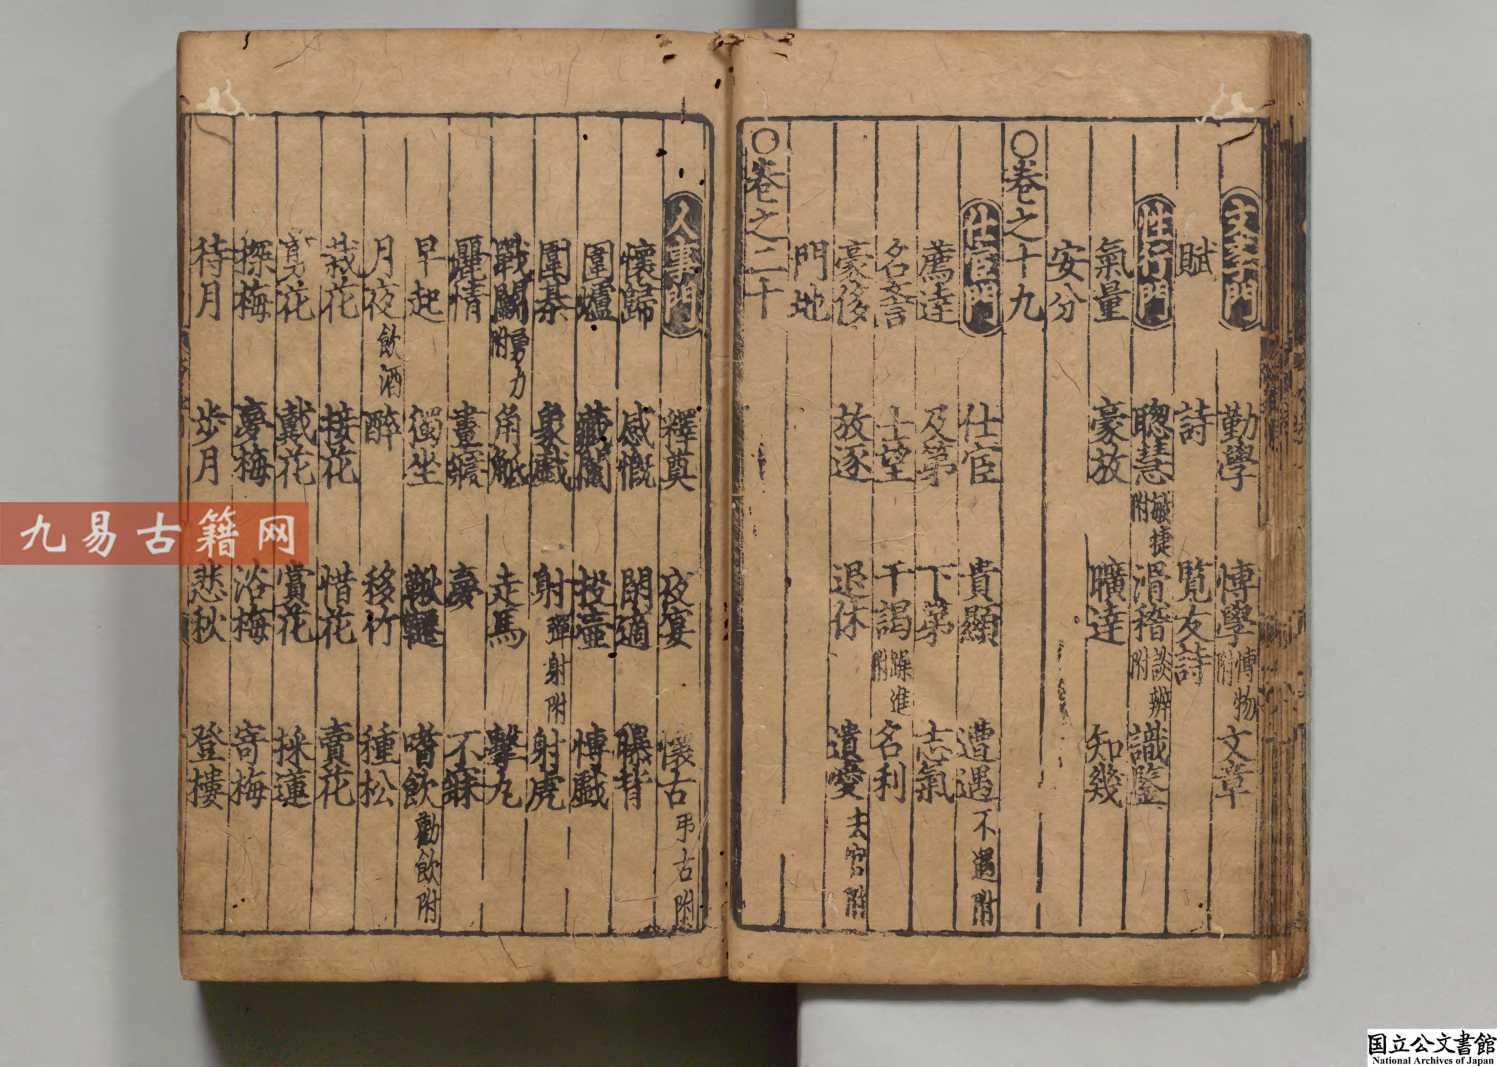 文章門 勤學 博學博物附 文章
賦 詩 覽友詩
性行門 聰慧敏捷附 滑稽談辨附 識鑒
氣量 豪放 曠達 知幾
安分
○卷之十九
仕宦門 仕宦 貴顯 遭遇不遇附
薦達 及第 下第 志氣
名言 士望 干謁躁進附 名利
豪俊 放逐 退休 遺愛去官附
門地
○卷之二十
人事門 釋奠 夜宴 懷古弔古附
懷歸 感慨 閑適 曝背
圍爐 藏鬮 投壺 博戲
圍棊 象戲 射彈射附 射虎
戰鬭勇力附 角觝 走馬 擊丸
麗情 晝寢 夢 不寐
早起 獨坐 鞦韆 嗜飲勸飲附
月夜飲酒 醉 移竹 種松
栽花 接花 惜花 賣花
覓花 戴花 賞花 採蓮
探梅 夢梅 浴梅 寄梅
待月 步月 悲秋 登樓
九易古籍网
国立公文書館
National Archives of Japan